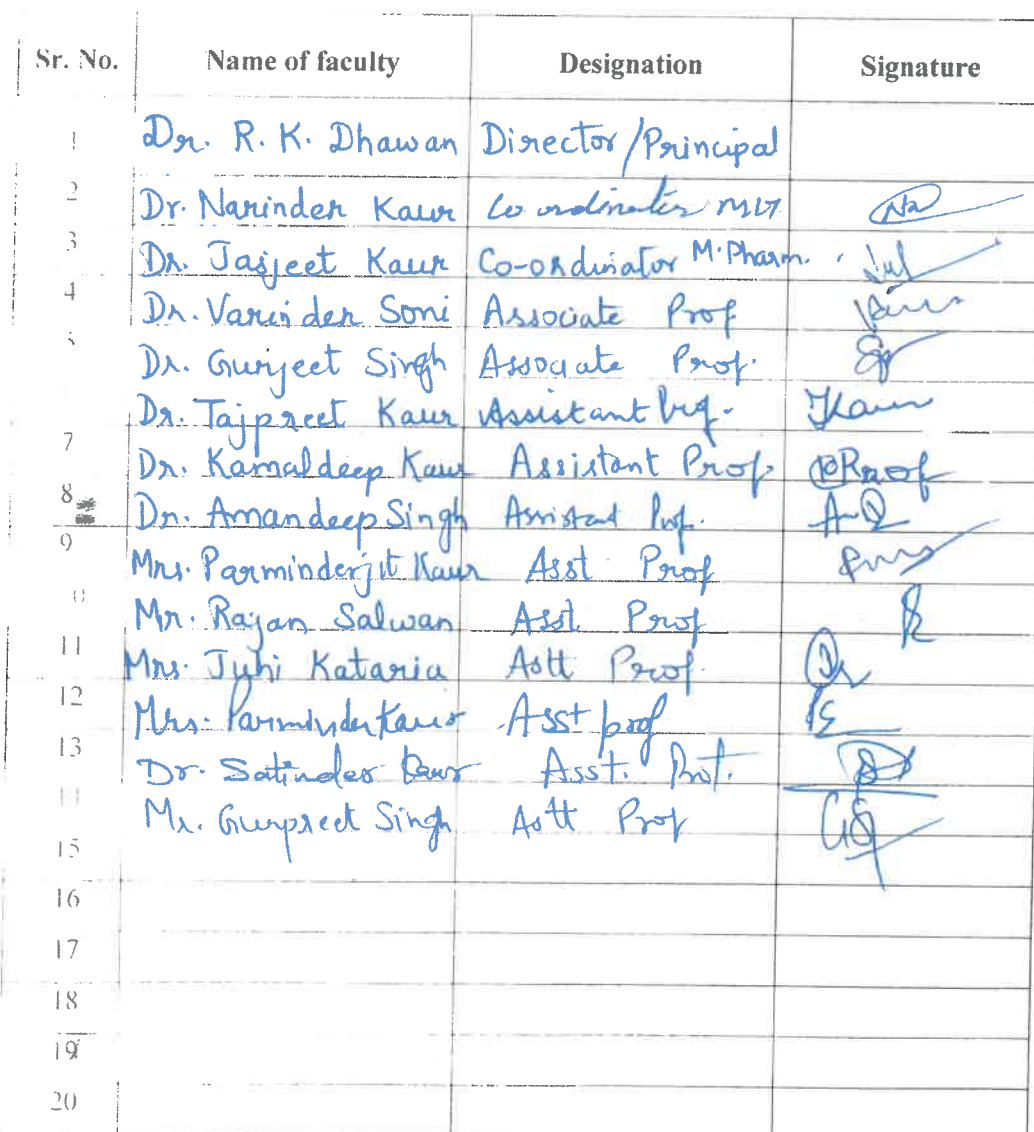 Sr. No. Name of faculty Designation Signature
1 Dr. R. K. Dhawan Director/Principal
2 Dr. Narinder Kaur Co ordinator MLT
3 Dr. Jasjeet Kaur Co-ordinator M.Pharm.
4 Dr. Varinder Soni Associate Prof
5 Dr. Gurjeet Singh Associate Prof.
Dr. Tajpreet Kaur Assistant Prof. Tkaur
7 Dr. Kamaldeep Kaur Assistant Prof.
8 Dr. Amandeep Singh Assistant Prof.
9 Mrs. Parminderjit Kaur Asst Prof
0 Mr. Rajan Salwan Asst Prof
11 Mrs. Juhi Kataria Astt Prof.
12 Mrs. Parminder Kaur Asst prof
13 Dr. Satinder Kaur Asst. Prof.
14 Mr. Gurpreet Singh Astt Prof
15
16
17
18
19
20